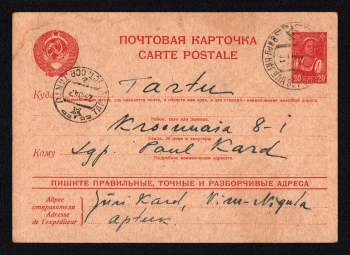 ПОЧТОВАЯ КАРТОЧКА
CARTE POSTALE
20 20
Куда Tartu
Kroonuaia 8-1
Кому Lgp. Paul Kard
Подробное наименование адресата
ПИШИТЕ ПРАВИЛЬНЫЕ, ТОЧНЫЕ И РАЗБОРЧИВЫЕ АДРЕСА
Адрес
отправителя Jüri Kard, Viru-Nigula
Adresse
de l'expéditeur